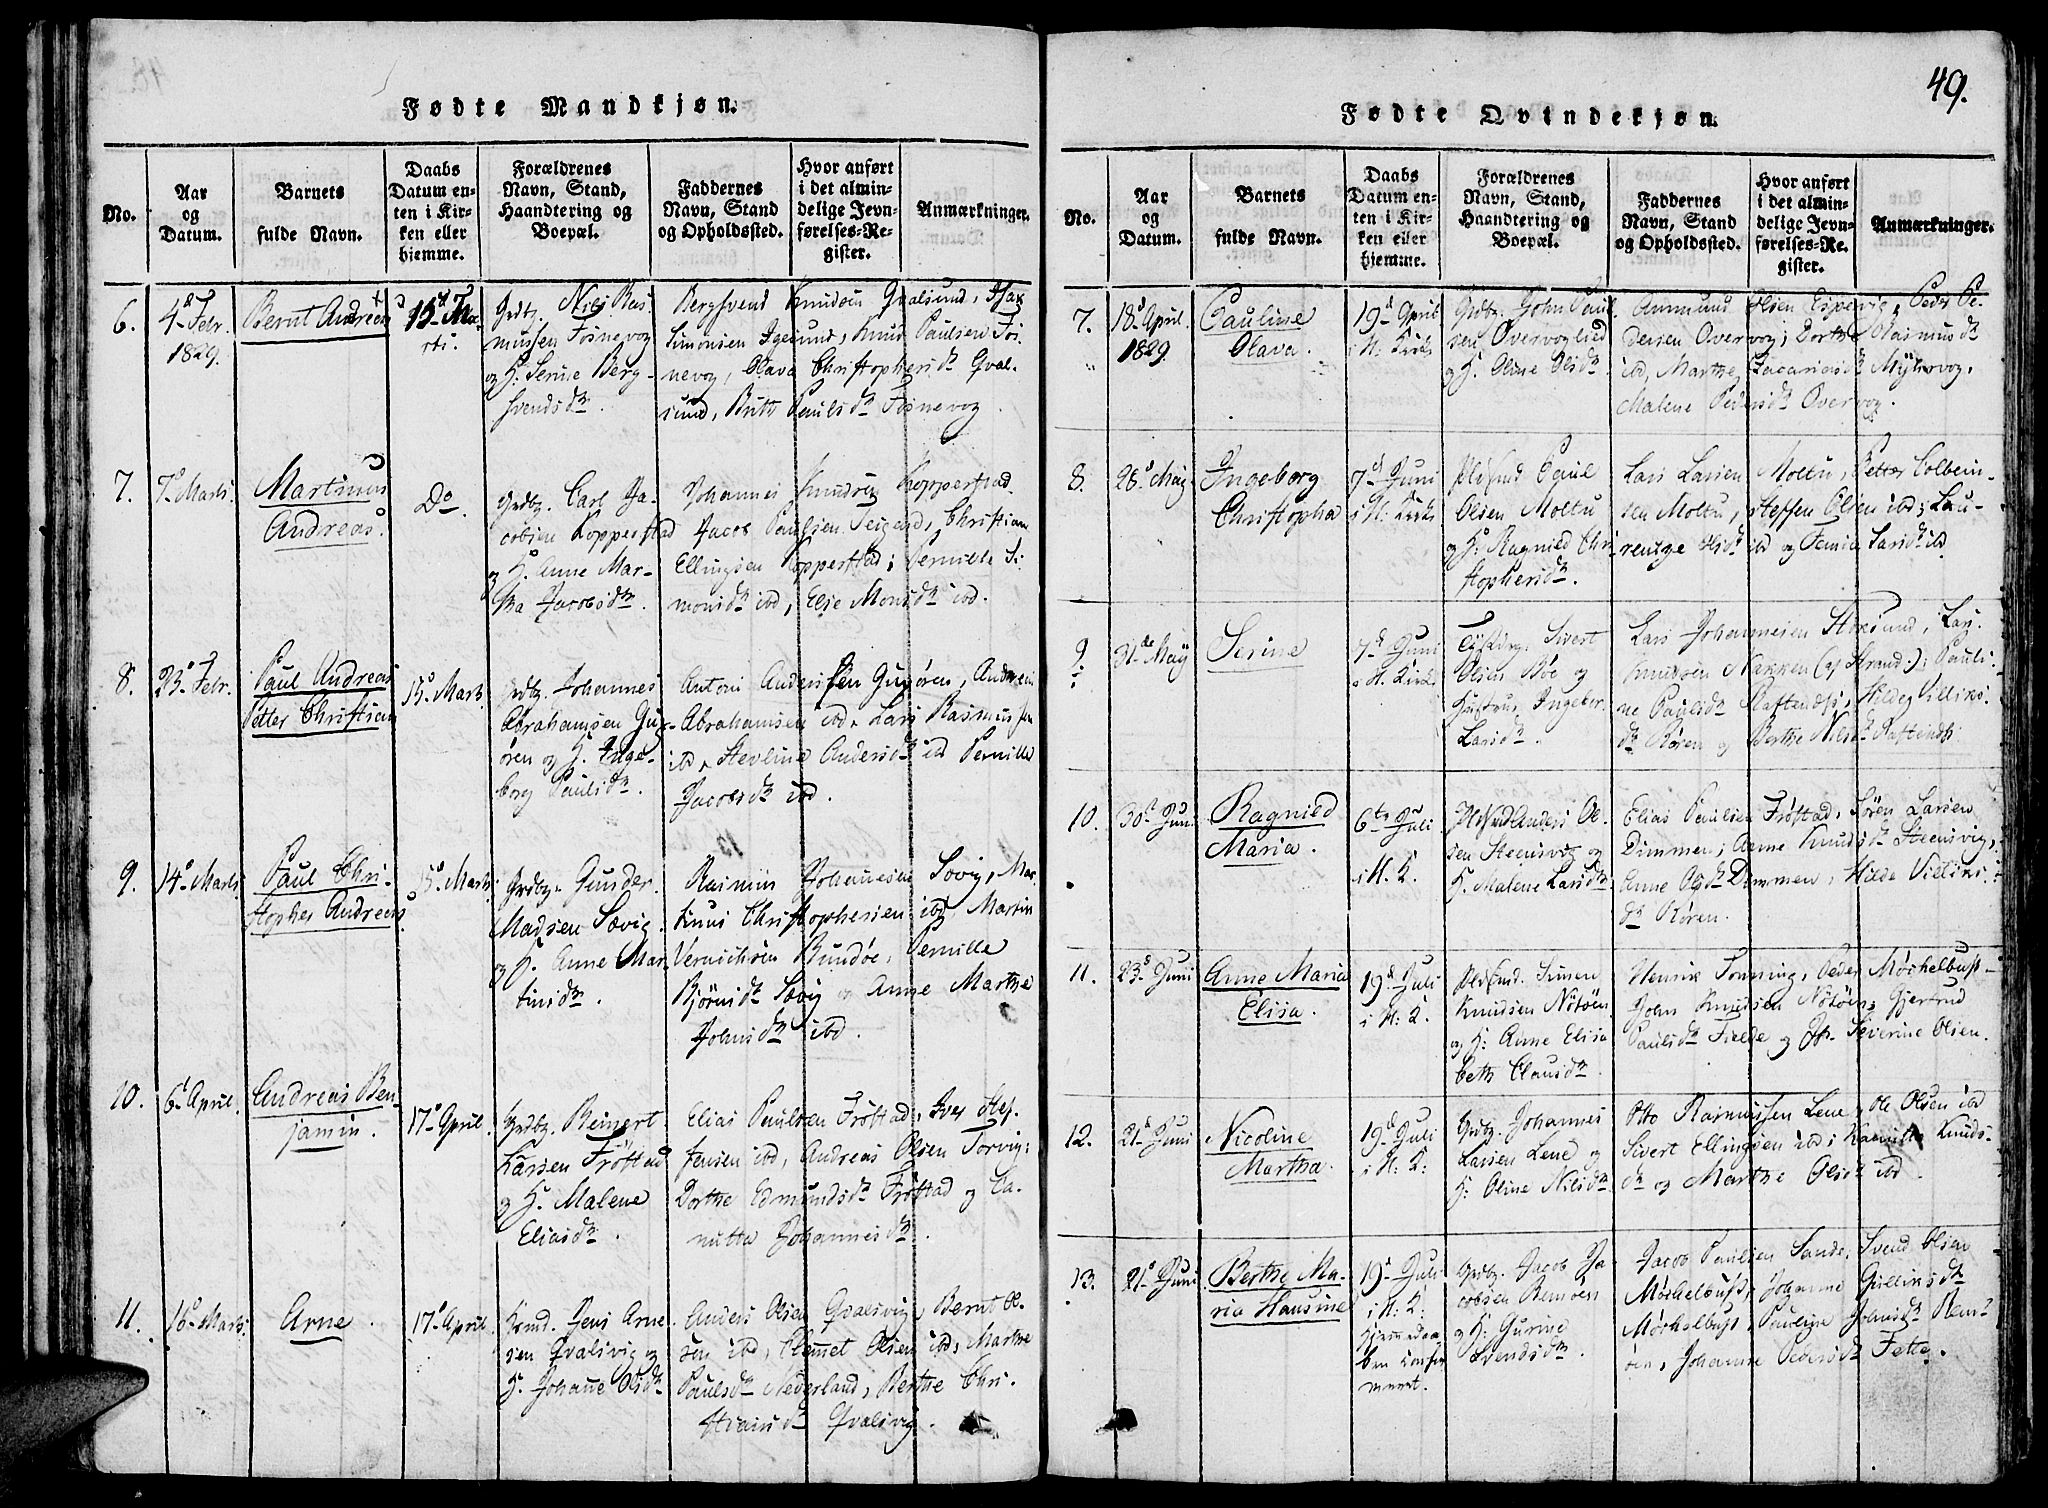 49.
Fødte Mandkjøn.
No.
Aar
og
Datum.
Barnets
fulde Navn.
Daabs
Datum en-
ten i Kir-
ken eller
hjemme.
Forældrenes
Navn, Stand,
Haandtering og
Boepæl.
Faddernes
Navn, Stand
og Opholdssted.
Hvor anført
i det almin-
delige Jevn-
førelses-Re-
gister.
Anmærkninger.
6.
4d Febr.
1829.
Bernt Andreas
15d Ma-
rti.
Grdbr. Nils Ras-
mussen Fosnevog
og H. Serine Berg-
svendsdr.
Bergsvend Knudsen Qvalsund, Isak
Simonsen Igesund, Knud Paulsen Fos-
nevog, Olava Christophersdr Qval-
sund, Paulsdr Fosnevog.
7.
7d Marti.
Martinus
Andreas.
Do.
Grdbr. Carl Ja-
cobsen Kopperstad
og H. Anne Mar-
tha Jacobsdr.
Johannes Knudsen Kopperstad,
Jacob Paulsen Teigene, Christian
Ellingsen Kopperstad; Pernille Si-
monsdr ibd, Else Monsdr ibd.
8.
23d Febr.
Paul Andreas
Petter Christian
15d Marti
Grdbr. Johannes
Abrahamsen Gur-
øren og H. Inge-
borg Paulsdr.
Antoni Andersen Gurøren, Andreas
Abrahamsen ibd, Lars Rasmussen
ibd, Stevline Andersdr ibd Pernille
Jacobsdr ibd.
9.
14d Marti
Paul Chri-
stopher Andreas
15d Marti
Grdbr. Gunder
Madsen Søvig
og H. Anne Mar-
tinsdr.
Rasmus Johannesen Søvig, Mar-
tinus Christophersen ibd, Martin
Vernichsen Rundøe, Pernille
Bjørnsdr Søvig og Anne Marthe
Johnsdr ibd.
10.
6d April.
Andreas Ben-
jamin.
17d April.
Grdbr. Reinert
Larsen Frøstad
og H. Malene
Eliasdr.
Elias Paulsen Frøstad, Iver Stef-
fensen ibd, Andreas Olsen Torvig;
Dorthe Edmundsdr Frøstad og Ca-
nutta Johannesdr.
11.
16d Marti.
Arne.
17d April.
Hmd. Jens Arne-
sen Qvalsvig og
H. Johanne Olsdr
Anders Olsen Qvalsvig, Bernt Ol-
sen ibd, Clemet Olsen ibd, Marthe
Paulsdr Nederland, Berthe Chri-
stiansdr Qvalsvig.
Fødte Qvindekjøn.
No.
Aar
og
Datum.
Barnets
fulde Navn.
Daabs
Datum en-
ten i Kir-
ken eller
hjemme.
Forældrenes
Navn, Stand,
Haandtering og
Boepæl.
Faddernes
Navn, Stand
og Opholdssted.
Hvor anført
i det almin-
delige Jevn-
førelses-Re-
gister.
Anmærkninger.
7.
18d April.
1829.
Pauline
Olava.
19d April
i H: Kirke
Grdbr. John Paul-
sen Overvoglied
og H. Oline Olsdr.
Anmund Olsen Espevig, Peder Pe-
dersen Overvog; Dorthe Rasmusdr
ibd, Marthe Zacariasdr Myklevog,
Malene Pedersdr Overvog.
8.
28d Maij
Ingeborg
Christopha
7d Juni
i H: Kirke
Pldsmd Paul
Olsen Moltu
og H: Ragnild Chri-
stophersdr.
Lars Larsen Moltu, Petter Colbein-
sen Moltu, Steffen Olsen ibd; Lau-
rentze Olsdr ibd og Larsdr ibd
9.
31te Maij
Serine
7d Juni
i H. Kirke
Sivert
Olsen Bøe og
Hustrue Ingebor
Larsdr.
Lars Johannesen Storsund, Lars
Knudsen Nakken (af Strand.); Pauli-
ne Paulsdr Raftenæs, Hilde Villiks-
dr Røren og Berthe Nilsdr Raftenæs.
10.
30d Juni
Ragnild
Maria.
6te Juli
i H. K.
Pldsmd Anders Ol-
sen Steensvig og
H. Malene Larsdr
Elias Paulsen Frøstad, Søren Larsen
Dimmen, Anne Knudsdr Steensvig,
Anne Olsdr Dimmen, Hilde Villiks-
dr Røren.
11.
23d Juni
Anne Maria
Elisa.
19d Juli
i H. K.
Pldsmd. Simen
Knudsen Notøen
og H: Anne Elisa-
beth Clausdr.
Henrik Tonning, Peder Møskelbust
John Knudsen Notøen; Gjertrud
Paulsdr Fielde og Severine Olsen.
12.
21d Juni
Nicoline
Martha.
19d Juli
i H. K:
Grdbr. Johannes
Larsen Lene og
H: Oline Nilsdr
Otto Rasmussen Lene, Ole Olsen ibd
Sivert Ellingsen ibd; Knuds-
dr og Marthe Olsdr ibd.
13.
21d Juni
Berthe Ma-
ria Hansine
19d Juli
i H. K:
Hjemmedaa-
ben confir-
meret.
Grdbr. Jacob Ja-
cobsen Remøen
og H: Gurine
Svendsdr.
Jacob Paulsen Sande, Svend Olsen
Møskelbust, Johanne Gulliksdr
Møskelbust, Pauline Johnsdr Rem-
øen, Johanne Pedersdr Fette.